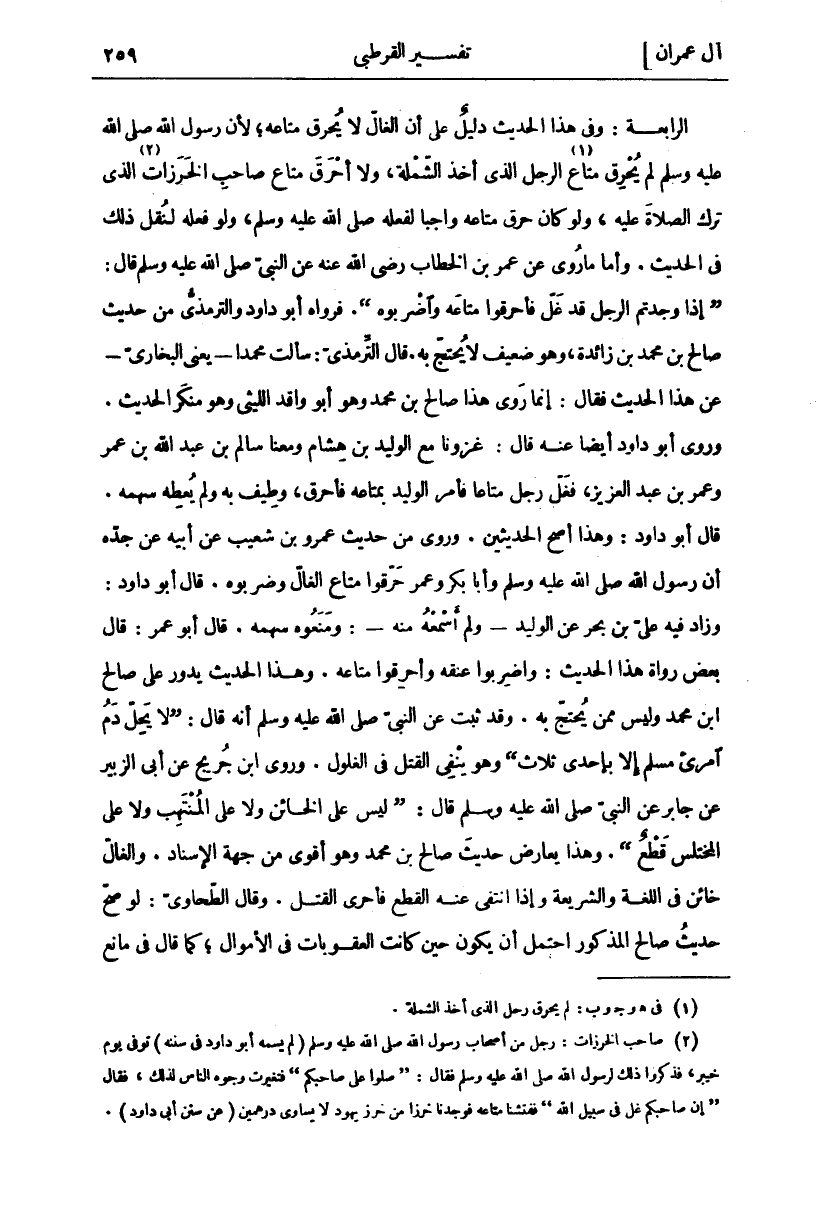 آل عمران ] تفسير القرطبى ٢٥٩
الرابعة : وفى هذا الحديث دليلٌ على أن الغالّ لا يُحرق متاعه؛ لأن رسول الله صلى الله
عليه وسلم لم يُحْرِق متاع الرجل (١) الذى أخذ الشّمْلة، ولا أحْرَقَ متاع صاحبِ الخَرَزات (٢) الذى
ترك الصلاةَ عليه ، ولو كان حرق متاعه واجبا لفعله صلى الله عليه وسلم، ولو فعله لنُقل ذلك
فى الحديث . وأما مارُوى عن عمر بن الخطاب رضى الله عنه عن النبىّ صلى الله عليه وسلم قال :
” إذا وجدتم الرجل قد غَلّ فأحرقوا متاعَه وآضْربوه “. فرواه أبو داود والترمذىُّ من حديث
صالح بن محمد بن زائدة، وهو ضعيف لا يُحتجّ به. قال التِّرمذىّ : سألت محمدا — يعنى البخارىّ —
عن هذا الحديث فقال : إنما رَوى هذا صالح بن محمد وهو أبو واقد الليثى وهو منكَر الحديث .
وروى أبو داود أيضا عنه قال : غزونا مع الوليد بن هِشام ومعنا سالم بن عبد الله بن عمر
وعمر بن عبد العزيز، فغَلّ رجل متاعا فأمر الوليد بمتاعه فأحرق، وطِيف به ولم يُعطِه سهمه .
قال أبو داود : وهذا أصح الحديثين . وروى من حديث عمرو بن شعيب عن أبيه عن جدّه
أن رسول الله صلى الله عليه وسلم وأبا بكر وعمر حَرّقوا متاع الغالّ وضربوه . قال أبو داود :
وزاد فيه علىّ بن بحر عن الوليد — ولم أَسْمَعْهُ منه — : ومَنَعُوه سهمه . قال أبو عمر : قال
بعض رواة هذا الحديث : واضربوا عنقه وأحرقوا متاعه . وهذا الحديث يدور على صالح
ابن محمد وليس ممن يُحتجّ به . وقد ثبت عن النبىّ صلى الله عليه وسلم أنه قال : ”لا يَحِلّ دَمُ
آمرئ مسلم إلا بإحدى ثلاث“ وهو ينْفِى القتل فى الغلول . وروى ابن جُريج عن أبى الزبير
عن جابر عن النبىّ صلى الله عليه وسلم قال : ” ليس على الخائن ولا على المُنْتَهِب ولا على
المختلس قَطْعٌ “ . وهذا يعارض حديثَ صالح بن محمد وهو أقوى من جهة الإسناد . والغالّ
خائن فى اللغة والشريعة وإذا انتفى عنه القطع فأحرى القتل . وقال الطّحاوىّ : لو صحّ
حديثُ صالح المذكور احتمل أن يكون حين كانت العقوبات فى الأموال ؛ كما قال فى مانع
(١) فى ه‍ و ج و ب : لم يحرق رحل الذى أخذ الشملة .
(٢) صاحب الخرزات : رجل من أصحاب رسول الله صلى الله عليه وسلم ( لم يسمه أبو داود فى سننه ) توفى يوم
خيبر ، فذكروا ذلك لرسول الله صلى الله عليه وسلم فقال : ” صلوا على صاحبكم “ فتغيرت وجوه الناس لذلك ، فقال
” إن صاحبكم غل فى سبيل الله “ ففتشنا متاعه فوجدنا خرزا من خرز يهود لا يساوى درهمين ( عن سنن أبى داود ) .